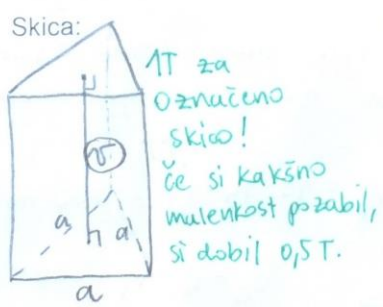 Skica:
1T za
označeno
skico!
če si kakšno
malenkost pozabil,
si dobil 0,5 T.
v
a
a
a